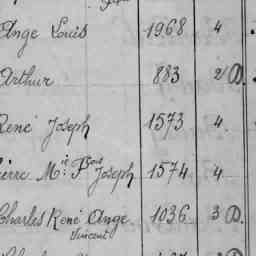 Ange Louis 1968 4
Arthur 883 2 D.
René Joseph 1573 4.
Pierre M.ie F.ois Joseph 1574 4
Charles René Ange 1036 3 D.
Vincent